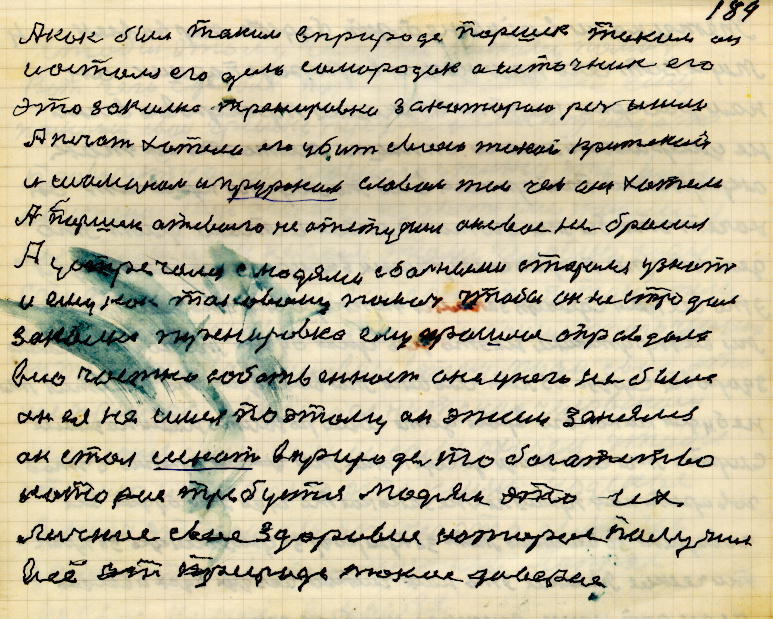 184
А как был таким в природе паршек таким он
и остался его дель самородок а источник его
это закалка тренировка за которою реч ишла
А печат хотела его убит своею такой критикой
и шоманам и придуркам словам тем чем он хотела
А паршек от етого не отступил он ево не бросил
А устречался с людями с больными старался узнат
и ему как таковому помоч чтобы он не страдал
закалка тренировка ему пришла оправдала
ево частна собственност она унего не была
он ея не имел поэтому он этим занялся
он стал искат в природе то богатство
которое требуется людям это их
личное свае здоровие которое получил
все от природе такое доверие